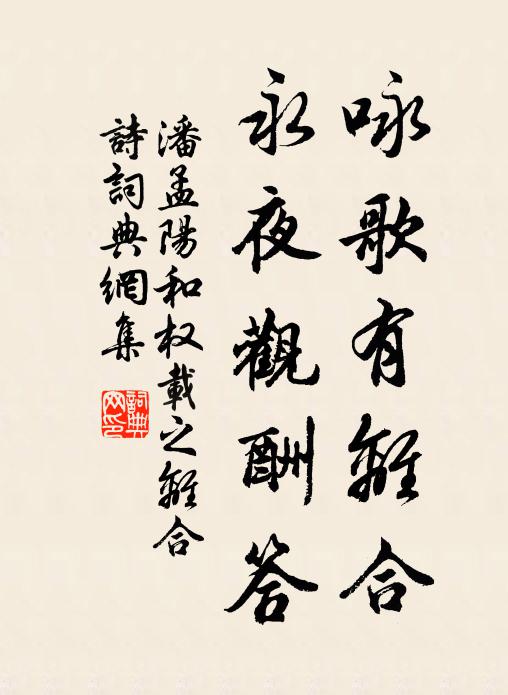 咏歌有離合
永夜觀酬答
潘孟陽和权載之離合
詩詞典網集
詞典网印